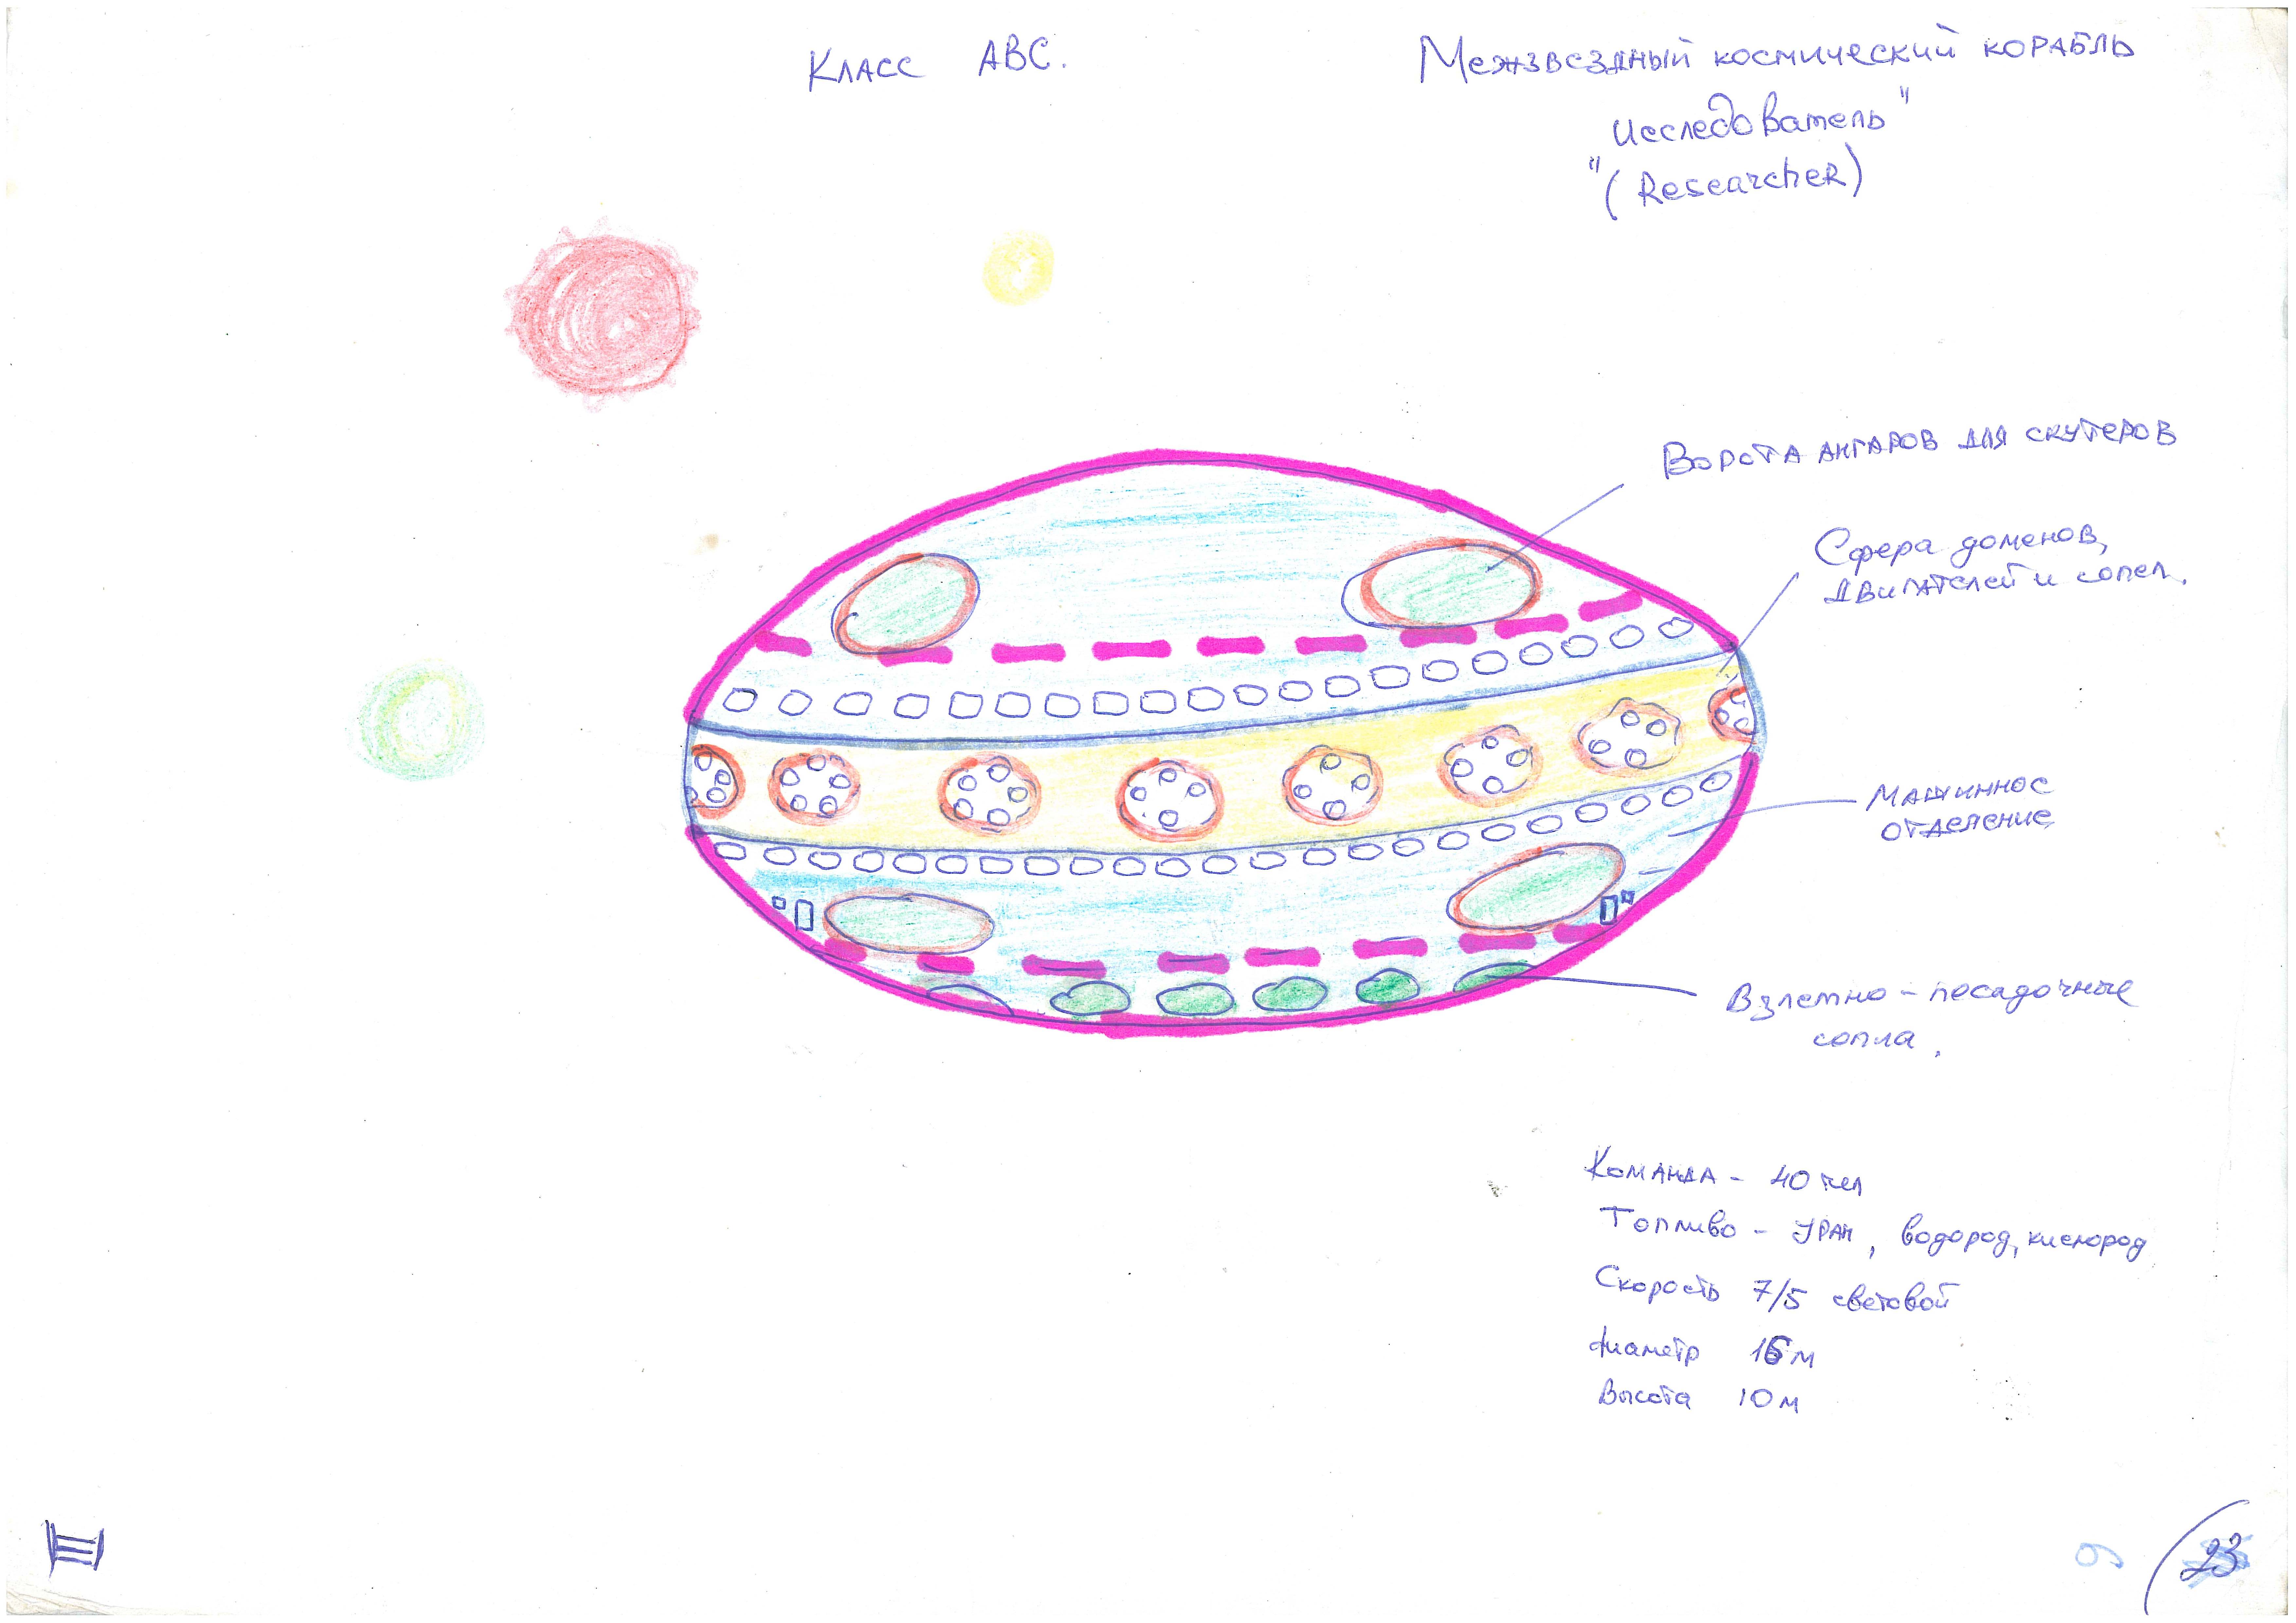 Класс АВС.
Межзвездный космический корабль
Исследователь"
"(Researcher)
Ворота ангаров для скутеров
Сфера доменов,
двигателей и сопел.
Машинное
отделение
Взлетно-посадочные
сопла.
Команда - 40 чел
Топливо - Уран, водород, кислород
Скорость 7/5 световой
Диаметр 16 м
Высота 10 м
III
23